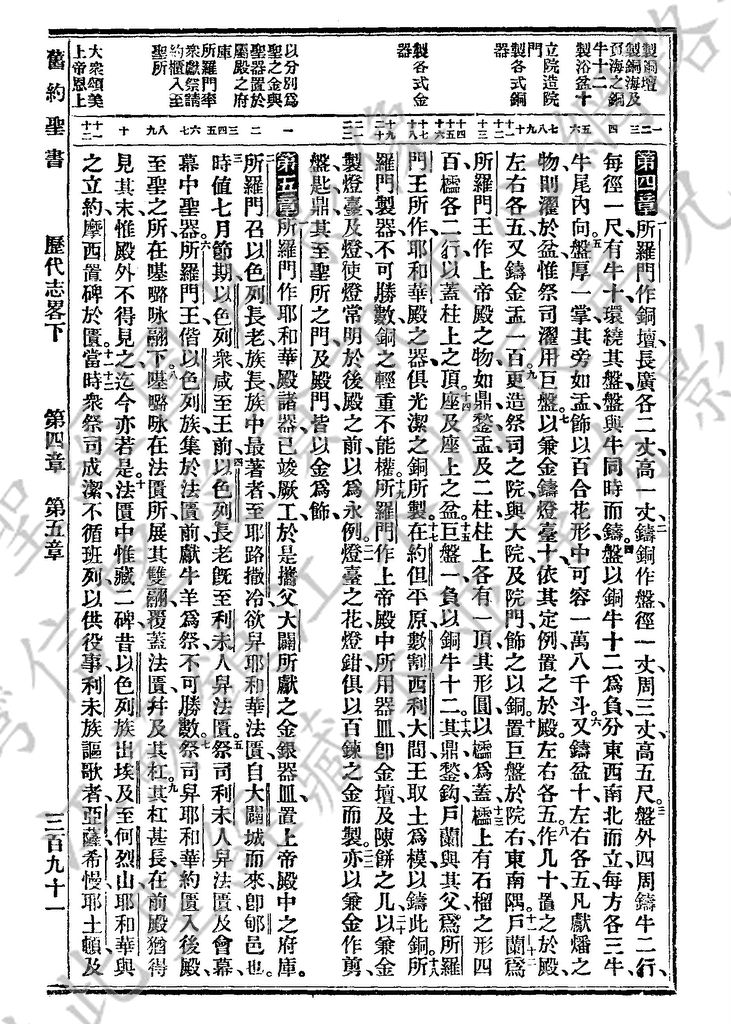 舊約聖書 歷代志畧下 第四章 第五章 三百九十一
製銅壇
製銅海及
負海之銅
牛十二
製浴盆十
立院造院
門
製各式銅
器
製各式金
器
以分別爲
聖之金與
聖器置於
屬殿之府
庫
所羅門率
衆獻祭請
約櫃入至
聖所
大衆頌美
上帝恩上
第四章 所羅門作銅壇長廣各二丈高一丈鑄銅作盤徑一丈周三丈高五尺盤外四周鑄牛二行、
每徑一尺有牛十環繞其盤盤與牛同時而鑄盤以銅牛十二爲負分東西南北而立每方各三牛、
牛尾內向盤厚一掌其旁如盂飾以百合花形中可容一萬八千斗又鑄盆十左右各五凡獻燔之
物則濯於盆惟祭司濯用巨盤以兼金鑄燈臺十依其定例置之於殿左右各五作几十置之於殿、
左右各五又鑄金盂一百更造祭司之院與大院及院門飾之以銅置巨盤於院右東南隅戶蘭爲
所羅門王作上帝殿之物如鼎鏊盂及二柱柱上各有一頂其形圓以櫺爲蓋櫺上有石榴之形四
百櫺各二行以蓋柱上之頂座及座上之盆巨盤一負以銅牛十二其鼎鏊鈎戶蘭與其父爲所羅
門王所作耶和華殿之器俱光潔之銅所製在約但平原數割西利大間王取土爲模以鑄此銅所
羅門製器不可勝數銅之輕重不能權所羅門作上帝殿中所用器皿卽金壇及陳餅之几以兼金
製燈臺及燈使燈常明於後殿之前以爲永例燈臺之花燈鉗俱以百鍊之金而製亦以兼金作剪
盤匙鼎其至聖所之門及殿門皆以金爲飾
第五章 所羅門作耶和華殿諸器已竣厥工於是攜父大闢所獻之金銀器皿置上帝殿中之府庫。
所羅門召以色列長老族長族中最著者至耶路撒冷欲舁耶和華法匱自大闢城而來卽郇邑也。
時値七月節期以色列衆咸至王前以色列長老旣至利未人舁法匱祭司利未人舁法匱及會幕、
幕中聖器所羅門王偕以色列族集於法匱前獻牛羊爲祭不可勝數祭司舁耶和華約匱入後殿
至聖之所在𠼻㗉㖡翮下𠼻㗉㖡在法匱所展其雙翮覆蓋法匱幷及其杠其杠甚長在前殿猶得
見其末惟殿外不得見之迄今亦若是法匱中惟藏二碑昔以色列族出埃及至何烈山耶和華與
之立約摩西置碑於匱當時衆祭司成潔不循班列以供役事利未族謳歌者亞薩希幔耶土頓及